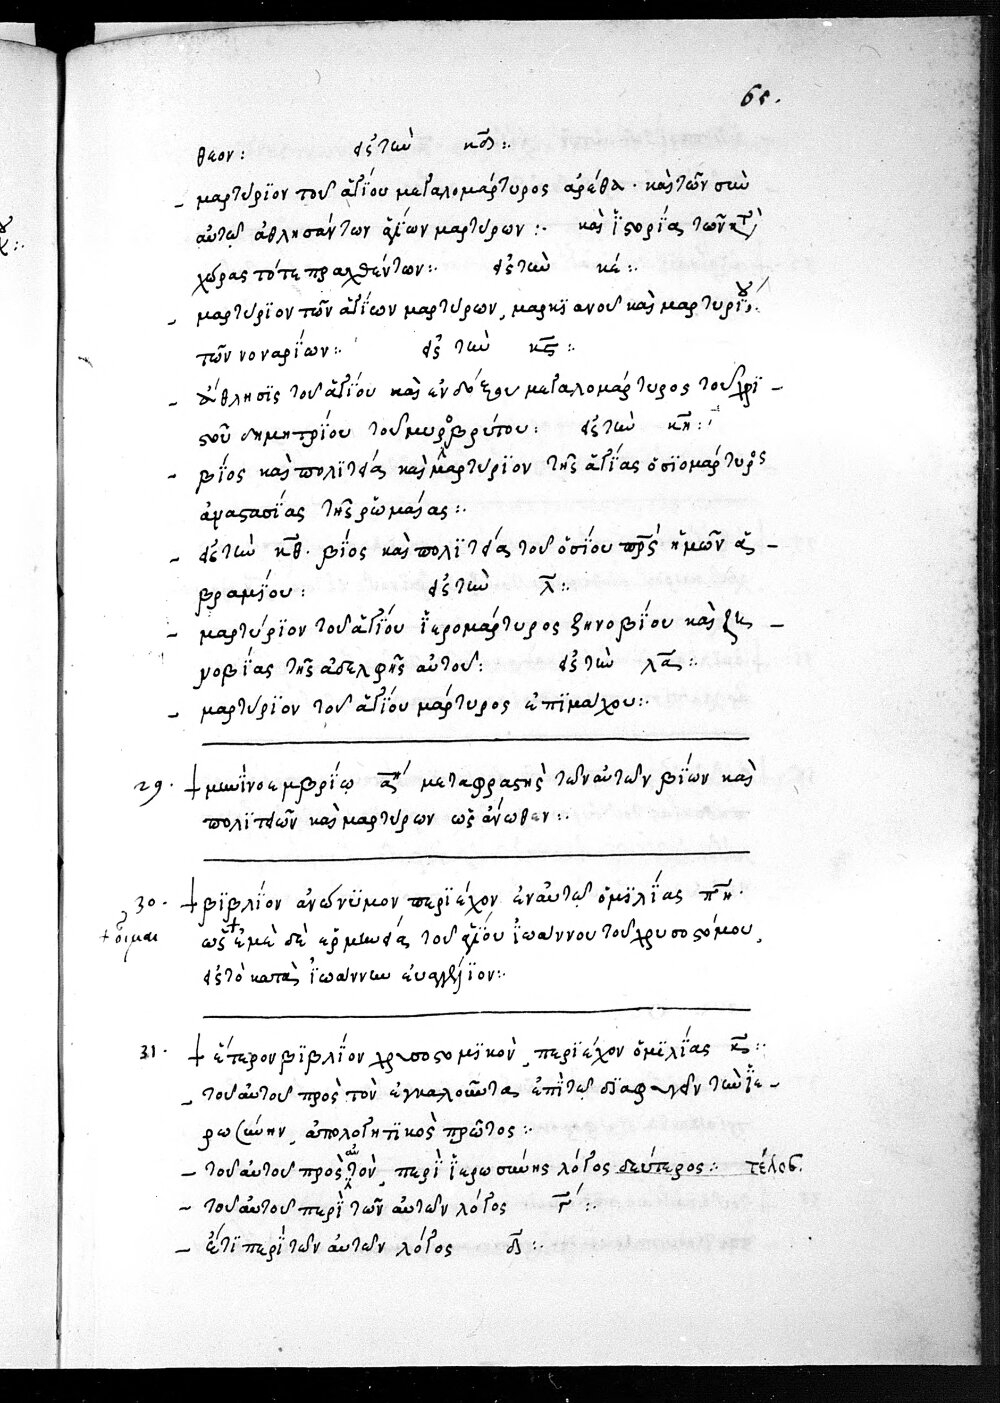 65.
θεον: εἰς τὴν κδ:.
- μαρτύριον τοῦ ἁγίου μεγαλομάρτυρος ἀρέθα. καὶ τῶν σὺν
αὐτῷ ἀθλησάντων ἁγίων μαρτύρων:. καὶ ἱστορίας τῶν κτ̀
χώρας τότε πραχθέντων:. εἰς τὴν κέ:.
- μαρτύριον τῶν ἁγίων μαρτύρων, μαρκϊανοῦ καὶ μαρτυρίου,
τῶν νοταρίων:. εἰς τὴν κς:.
- ἄθλησϊς τοῦ ἁγίου καὶ ἐνδόξου μεγαλομάρτυρος τοῦ χρϊ -
στοῦ δημητρίου τοῦ μυροβρύτου: εἰς τὴν κη:.
- βίος καὶ πολϊτεία καὶ μαρτύριον τῆς ἁγίας ὁσϊομάρτυρος
ἀναστασίας τῆς ῥωμαίας:.
- εἰς τὴν κθ. βίος καὶ πολϊτεία τοῦ ὁσίου πρς ἡμῶν ἀ -
βραμίου: εἰς τὴν λ:.
- μαρτύριον τοῦ ἁγίου ἱερομάρτυρος ζηνοβίου καὶ ζη -
νοβίας τῆς ἀδελφῆς αὐτοῦ: εἰς τὴν λα:.
- μαρτύριον τοῦ ἁγίου μάρτυρος ἐπϊμάχου:.
29. † μηνὶ νοεμβρίῳ α μεταφραστὴς τῶν αὐτῶν βίων καὶ
πολϊτειῶν καὶ μαρτύρων ὡς ἄνωθεν:.
30. † βϊβλίον ἀνώνϋμον περϊέχον ἐν αὐτῷ ὁμϊλίας πη.
+ οἶμαι ὡς + ἐμὲ δὲ ἑρμηνεία τοῦ ἁγίου ἰωάννου τοῦ χρυσοστόμου,
εἰς τὸ κατὰ ἰωάννην εὐαγγέλϊον:.
31. † ἕτερον βϊβλίον χρυσοστομϊκὸν, περϊέχον ὁμϊλίας κς:.
- τοῦ αὐτοῦ πρὸς τὸν ἐγκαλοῦντας ἐπὶ τῷ δϊαφυγεῖν τὴν ἱε -
ρωσύνην, ἀπολογητϊκὸς πρῶτος:.
- τοῦ αὐτοῦ πρὸς τὸν αὐ, περὶ ἱερωσύνης λόγος δεύτερος:. τέλος.
- τοῦ αὐτοῦ περὶ τῶν αὐτῶν λόγος γ:.
- ἔτϊ περὶ τῶν αὐτῶν λόγος δ:.